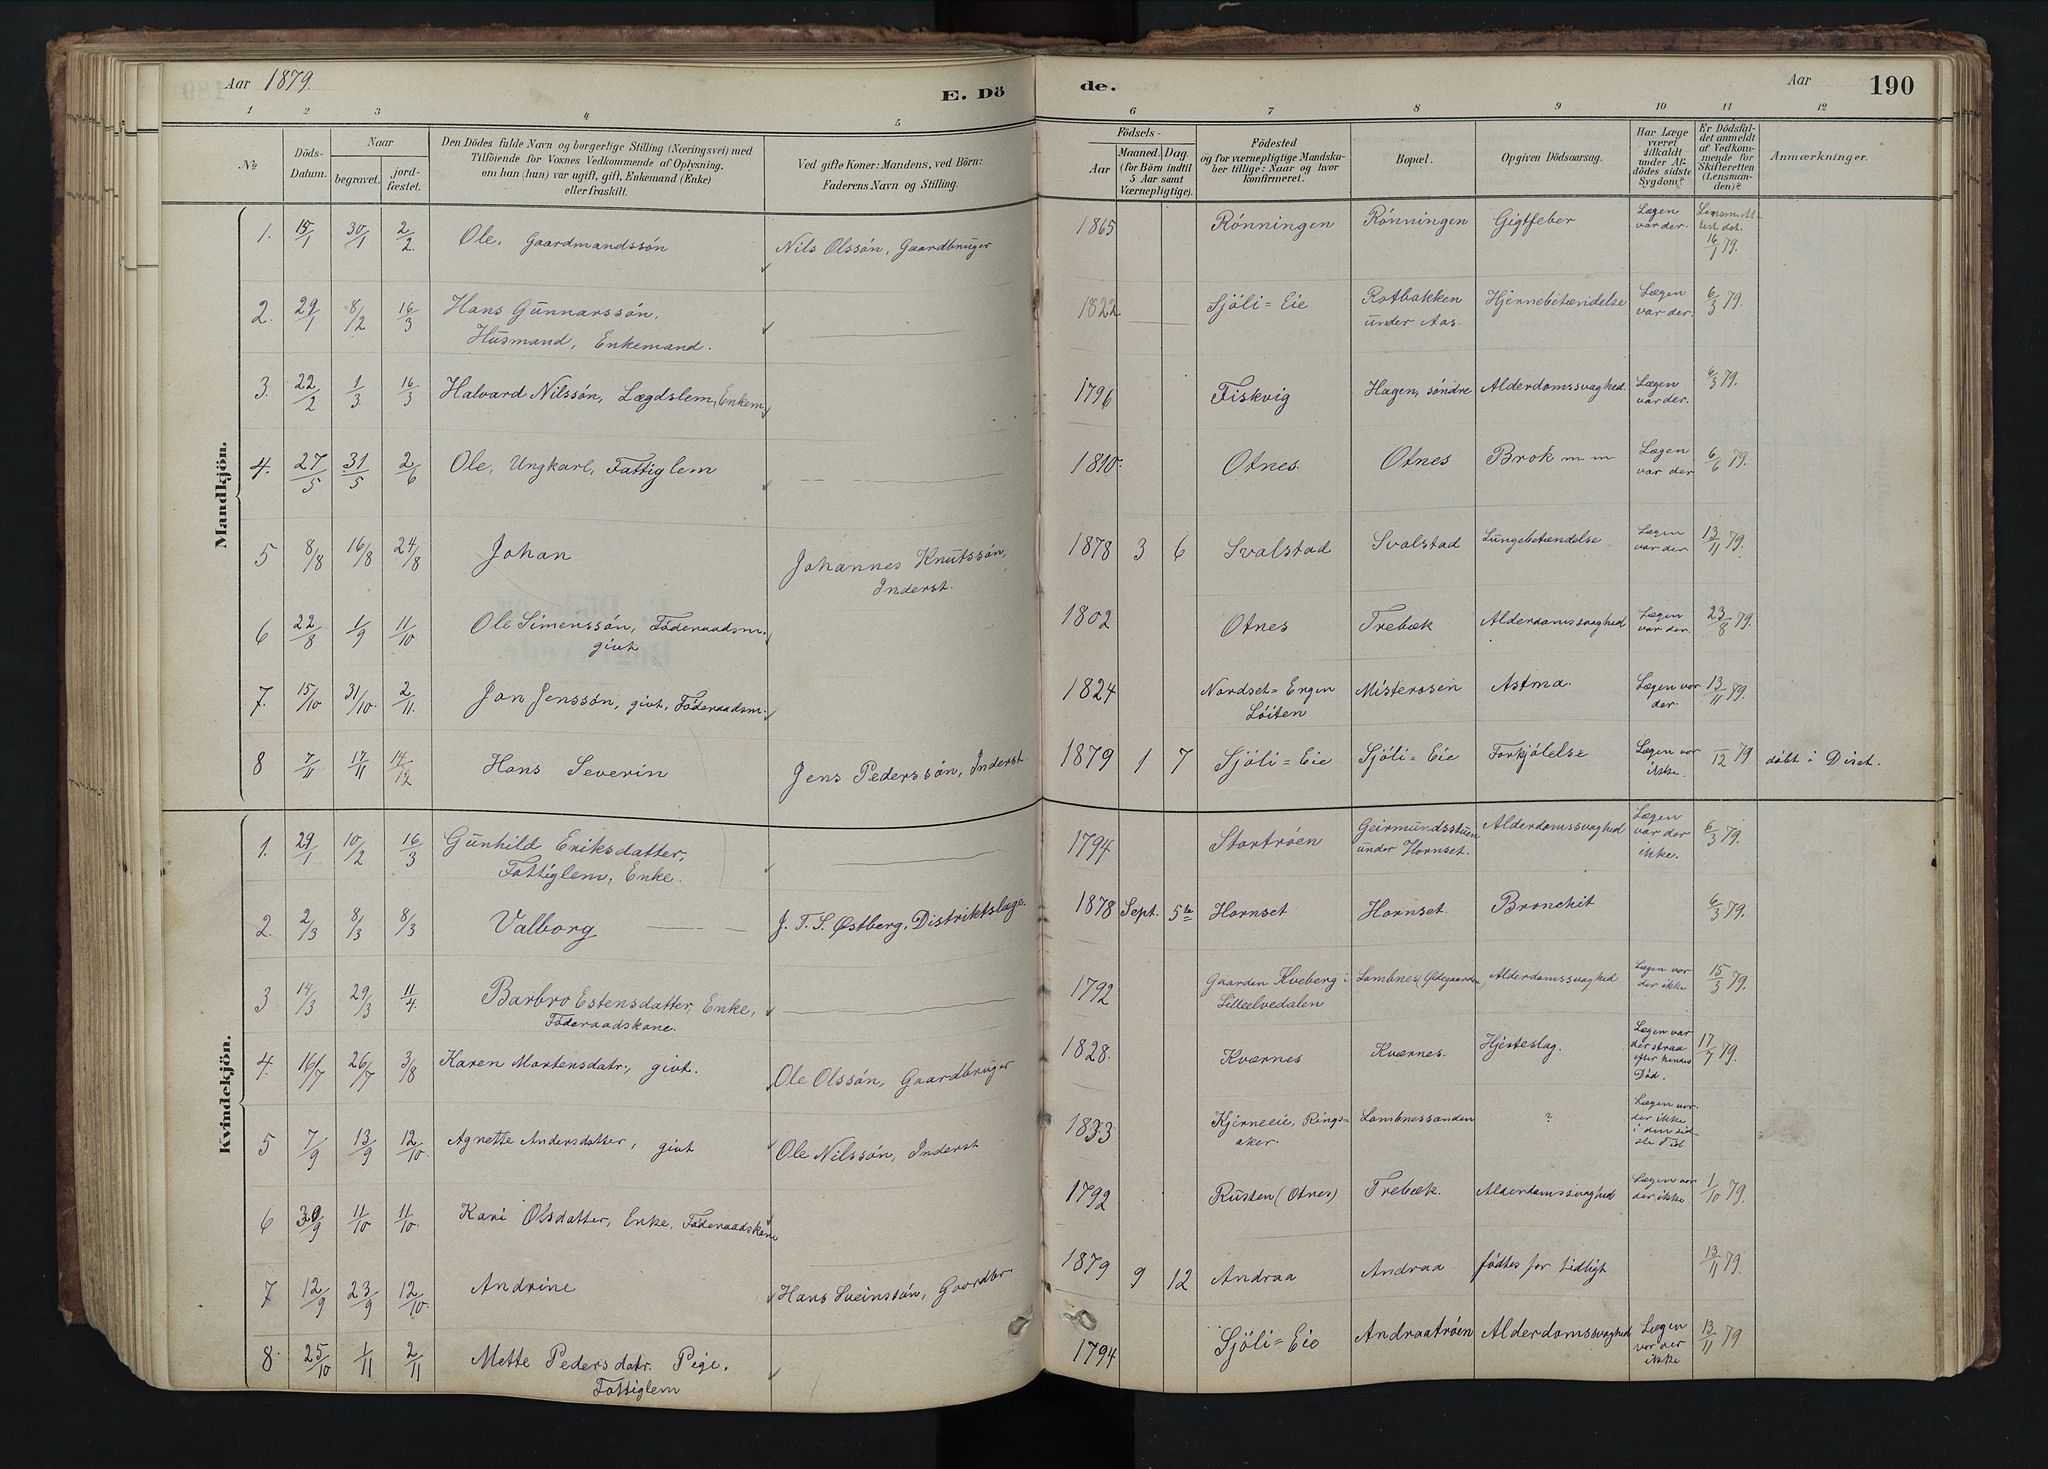 Aar 1879.
E. Dö
de.
Aar
190
1 2 3 4 5 6 7 8 9 10 11 12
No
Döds-
Datum.
Naar
begravet.
jord-
fæstet.
Den Dödes fulde Navn og borgerlige Stilling (Næringsvei) med
Tilföiende for Voxnes Vedkommende af Oplysning,
om han (hun) var ugift, gift, Enkemand (Enke)
eller fraskilt.
Ved gifte Koner: Mandens, ved Börn:
Faderens Navn og Stilling.
Födsels-
Aar
Maaned. Dag.
(for Börn indtil
5 Aar samt
Værnepligtige).
Födested
og for værnepligtige Mandska-
ber tillige: Naar og hvor
konfirmeret.
Bopæl.
Opgiven Dödsaarsag.
Har Læge
været
tilkaldt
under Af-
dödes sidste
Sygdom?
Er Dödsfal-
det anmeldt
af Vedkom-
mende for
Skifteretten
(Lensman-
den)?
Anmærkninger.
Mandkjön.
1. 15/1 30/1 2/2. Ole, Gaardmandssön Nils Olssön, Gaardbruger 1865 Rönningen Rönningen Gigtfeber Lægen var der. 16/1 79.
2. 29/1 8/2 16/3 Hans Gunnarssön,
Husmand, Enkemand. 1822 Sjöli=Eie Rotbakken under Aas. Hjernebetændelse Lægen var der. 6/3 79.
3. 22/2 1/3 16/3 Halvard Nilssön, Lægdslem, Enkem. 1796 Fiskvig Hagen, söndre Alderdomssvaghed. Lægen var der. 6/3 79.
4. 27/5 31/5 2/6 Ole, Ungkarl, Fattiglem 1810. Otnes. Otnes Brok m. m Lægen var der 6/6 79.
5 8/8 16/8 24/8 Johan Johannes Knutssön,
Inderst. 1878 3 6 Svalstad Svalstad Lungebetændelse Lægen var der. 13/11 79.
6 22/8 1/9 11/10 Ole Simenssön, Föderaadsm.
givt 1802 Otnes Trebæk Alderdomssvaghed Lægen var der. 23/8 79.
7. 15/10 31/10. 2/11. Jon Jenssön, givt, Föderaadsm. 1824 Nordset=Engen
Löiten Misterosen Astma. Lægen var der. 13/11 79.
8 7/11 17/11 14/12 Hans Severin Jens Pederssön, Inderst 1879 1 7 Sjöli=Eie Sjöli=Eie Forkjölelse Lægen var ikke. /12 79 döbt i Diset.
Kvindekjön.
1. 29/1 10/2 16/3 Gunhild Eriksdatter,
Fattiglem, Enke. 1794 Stortröen Geirmundsstuen under Hornset. Alderdomssvaghed Lægen var der ikke. 6/3 79.
2. 2/3 8/3 8/3 Valborg J. F. S. Østberg, Distriktslæge. 1878 Sept. 5te Hornset Hornset. Bronchit 6/3 79.
3 14/3 29/3 11/4. Barbro Estensdatter, Enke,
Föderaadskone. 1792 Gaarden Kveberg i
Lilleelvedalen Lombnes (Ødegaarden) Alderdomssvaghed Lægen var der ikke 15/3 79.
4. 16/7 26/7 3/8 Karen Mortensdatr., givt. Ole Olssön, Gaardbruger 1828. Kværnes Kværnes Hjerteslag. Lægen var der straa efter hendes Död. 17/7 79.
5 7/9 13/9 12/10. Agnette Andersdatter, givt Ole Nilssön, Inderst 1833 Kjerneeie, Rings-
aker. Lombnessanden ? Lægen var der ikke i den sid-
ste Tid
6 30/9 11/10 11/10. Kari Olsdatter, Enke, Föderaadskone 1792 Rusten (Otnes) Trebæk. Alderdomssvaghed Lægen var der ikke 1/10 79.
7 12/9 23/9 12/10. Andrine Hans Sveinssön, Gaardbr. 1879 9 12 Andraa Andraa födtes for tidligt 13/11 79.
8. 25/10 1/11 2/11 Mette Pedersdatr. Pige.
Fattiglem 1794 Sjöli=Eie Andraatröen Alderdomssvaghed Lægen var der ikke 13/11 79